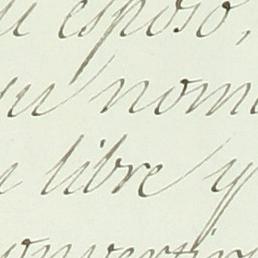 esposo,
su nom
libre y
convertir